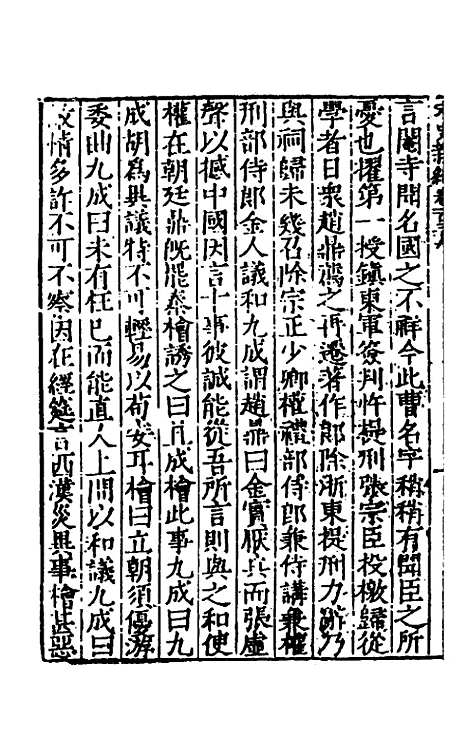 宋史新編卷一百三十八
言閹寺聞名國之不祥今此曹名字稱稱有聞臣之所
憂也擢第一授鎮東軍簽判忤提刑張宗臣投檄歸從
學者日衆趙鼎薦之再遷著作郎除浙東提刑力辭乃
與祠歸未幾召除宗正少卿權禮部侍郎兼侍講兼權
刑部侍郎金人議和九成謂趙鼎曰金實厭兵而張虛
聲以撼中國因言十事彼誠能從吾所言則與之和使
權在朝廷鼎旣罷秦檜誘之曰且成檜此事九成曰九
成胡爲異議特不可輕易以苟安耳檜曰立朝須優游
委曲九成曰未有枉已而能直人上問以和議九成曰
敵情多許不可不察因在經筵言西漢災異事檜甚惡